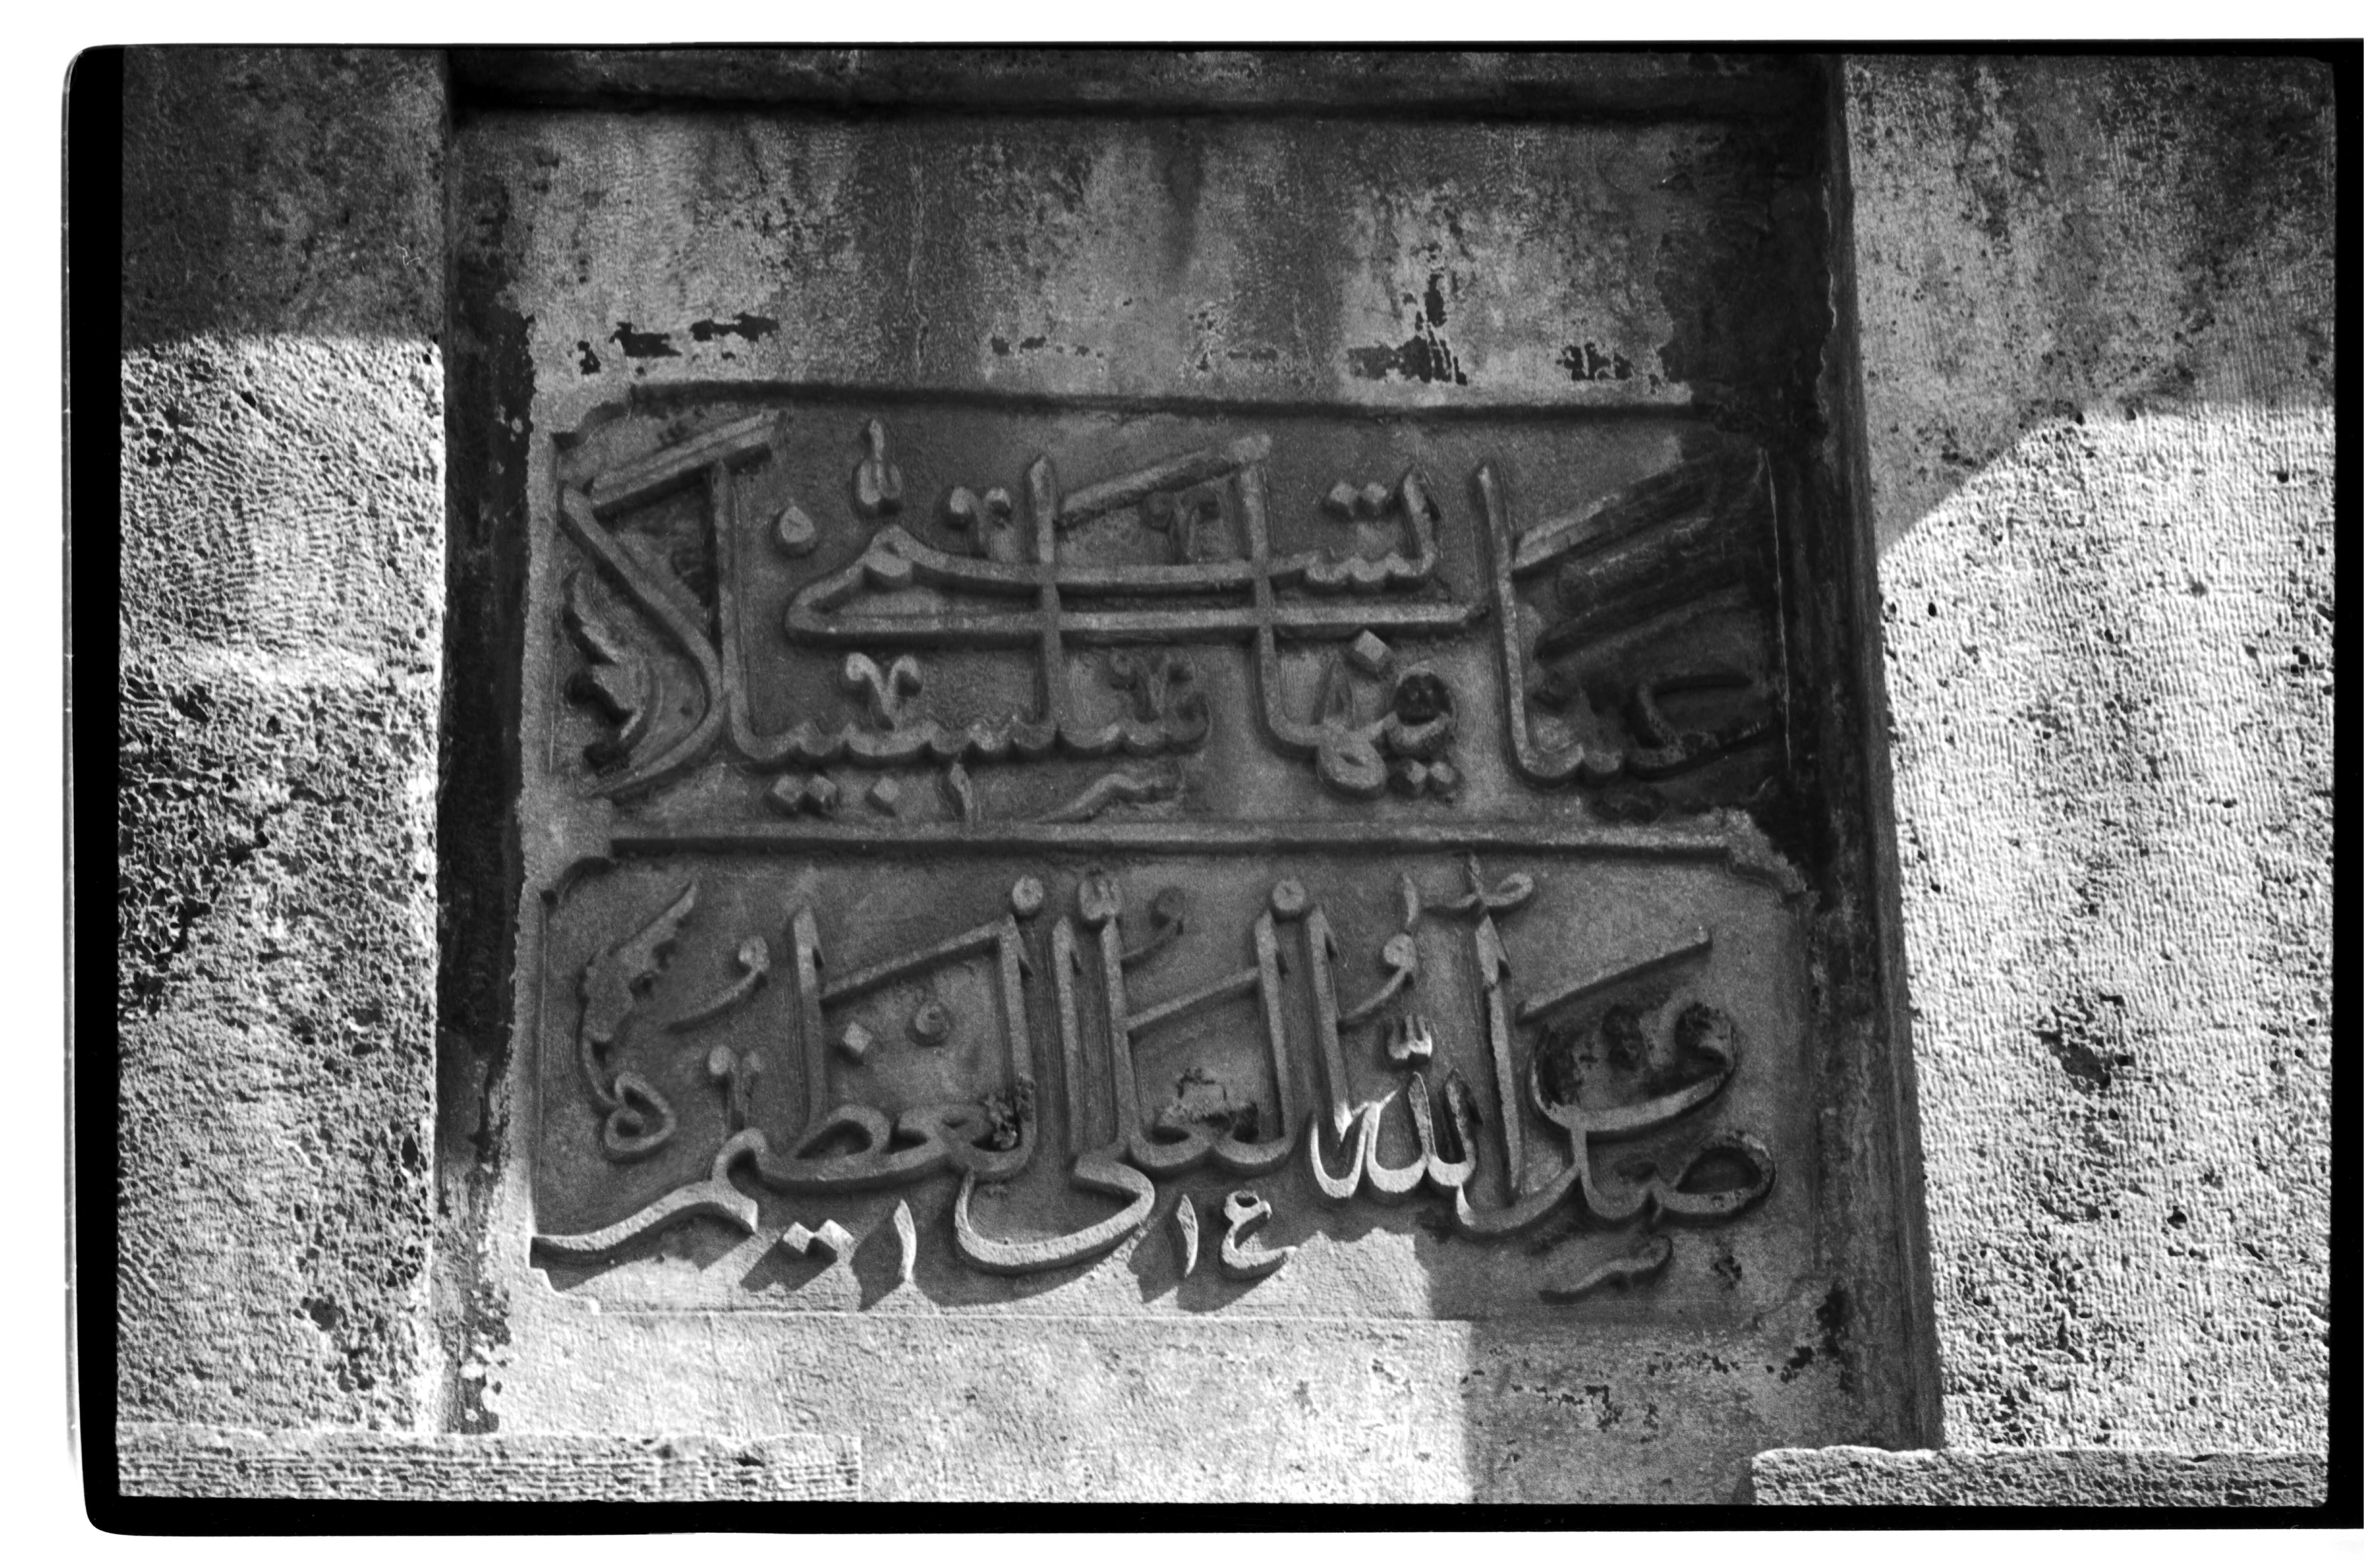 عينا فيها تسمى سلسبيلا
صدق الله العلي العظيم